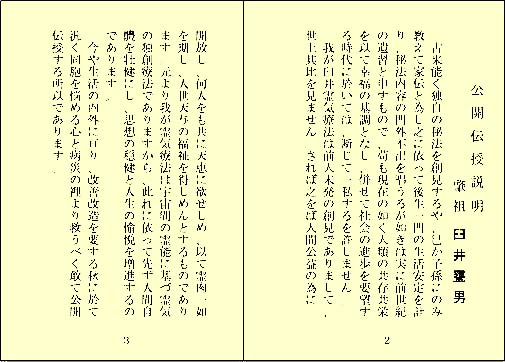 公開伝授説明
肇祖 臼井甕男
古来能く独自の秘法を創見するや、己か子孫にのみ
教えて家伝と為し之に依って後生一門の生活安定を計
り、秘法内容の門外不出を習うるが如きは実に前世紀
の遺習と申すもので、苟も現在の如く人類の共存共栄
を以て幸福の基調となし、併せて社会の進歩を要望す
る時代に於いては、断じて、私するを許しません。
我が臼井霊気療法は前人未発の創見でありまして、
世上其比を見ません。されば之をば人間公益の為に
2
開放し、何人をも共に天恵に欲せしめ、以て霊肉一如
を期し、人世天与の福祉を得しめんとするものであり
ます。元より我が霊気療法は宇宙間の霊能に基づく霊気
の独創療法でありますから、此れに依って先ず人間自
體を壮健にし、思想の穏健と人生の愉悦を増進するの
であります。
今や生活の内外に亘り、改善改造を要する秋に於て
汎く同胞を悩める心と病災の裡より救うべく敢て公開
伝授する所以であります。
3